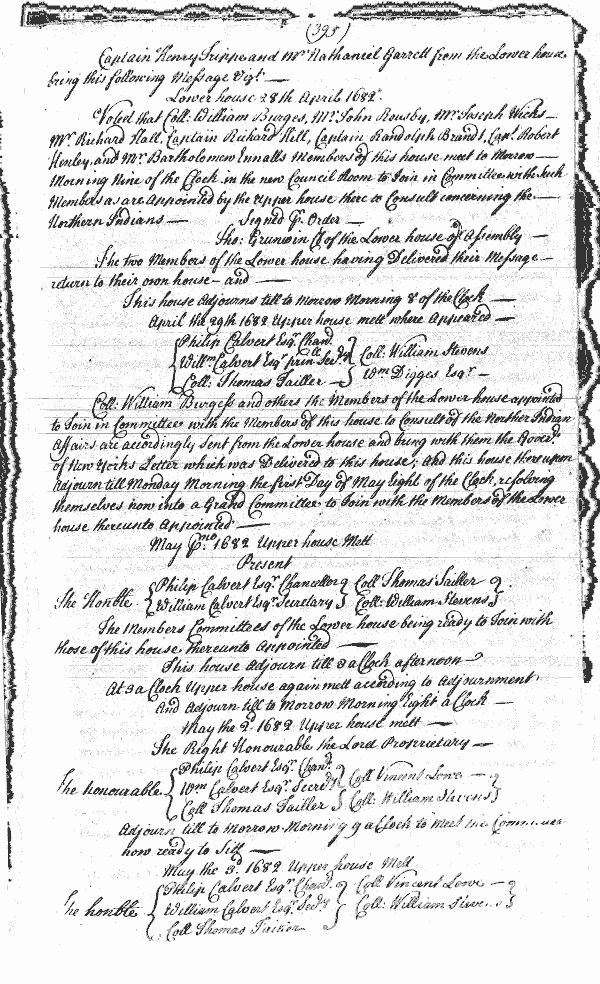 (395)
Captain Henry Trippe and Mr. Nathaniel Garrett from the Lower house
bring this following Message Vizt. —
Lower house 28th April 1682.
Voted that Coll: William Burges, Mr. John Rousby, Mr. Joseph Wicks —
Mr. Richard Hall, Captain Richard Hill, Captain Randolph Brandt, Capt. Robert
Henley, and Mr. Bartholomew Ennalls Members of this house meet to Morrow —
Morning Nine of the Clock in the new Council Room to Join in Committee with such
Members as are Appointed by the Upper house there to Consult concerning the —
Northern Indians — Signed P. Order —
Tho: Grunwin Cl. of the Lower house of Assembly —
The two Members of the Lower house having Delivered their Message —
return to their own house — and —
This house Adjourns till to Morrow Morning 8 of the Clock —
April the 29th 1682 Upper house mett where Appeared —
Philip Calvert Esqr. Chanc.
Willm. Calvert Esqr. prin.ll Secry. Coll: William Stevens
Coll: Thomas Tailler — Wm Digges Esqr —
Coll: William Burgess and others the Members of the Lower house appointed
to Join in Committee with the Members of this house to Consult of the Norther Indian
Affairs are accordingly sent from the Lower house and bring with them the Govr.
of New Yorks Letter which was Delivered to this house; And this house thereupon
Adjourn till Monday Morning the first Day of May Eight of the Clock, resolving
themselves now into a Grand Committee to Join with the Members of the Lower
house thereunto Appointed —
May Pmo. 1682 Upper house Mett
Present
The Honble. Philip Calvert Esqr. Chancellor Coll Thomas Tailler
William Calvert Esqr. Secretary Coll: William Stevens
The Members Committees of the Lower house being ready to Join with
those of this house thereunto Appointed —
This house Adjourn till 3 a Clock afternoon —
At 3 a Clock Upper house again mett according to Adjournment
And Adjourn till to Morrow Morning Eight a Clock —
May the 2d. 1682 Upper house mett —
The Right Honourable the Lord Proprietary —
The honourable Philip Calvert Esqr. Chanc. Coll Vincent Lowe —
Wm Calvert Esqr. Secrety. Coll: William Stevens
Coll Thomas Tailler
Adjourn till to Morrow Morning 9 a Clock to Meet the Committee
now ready to Sitt —
May the 3d. 1682 Upper house Mett
The honble Philip Calvert Esqr. Chanc. Coll Vincent Lowe —
William Calvert Esqr. Secry. Coll: William Steve..s
Coll Thomas Tailler